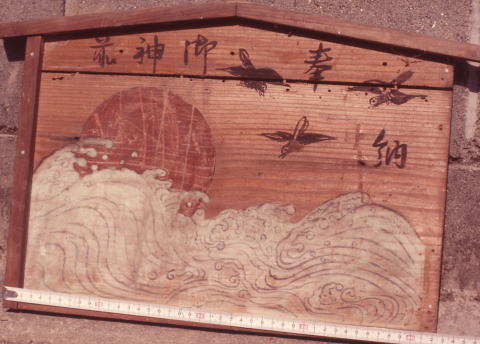 奉納
御神前